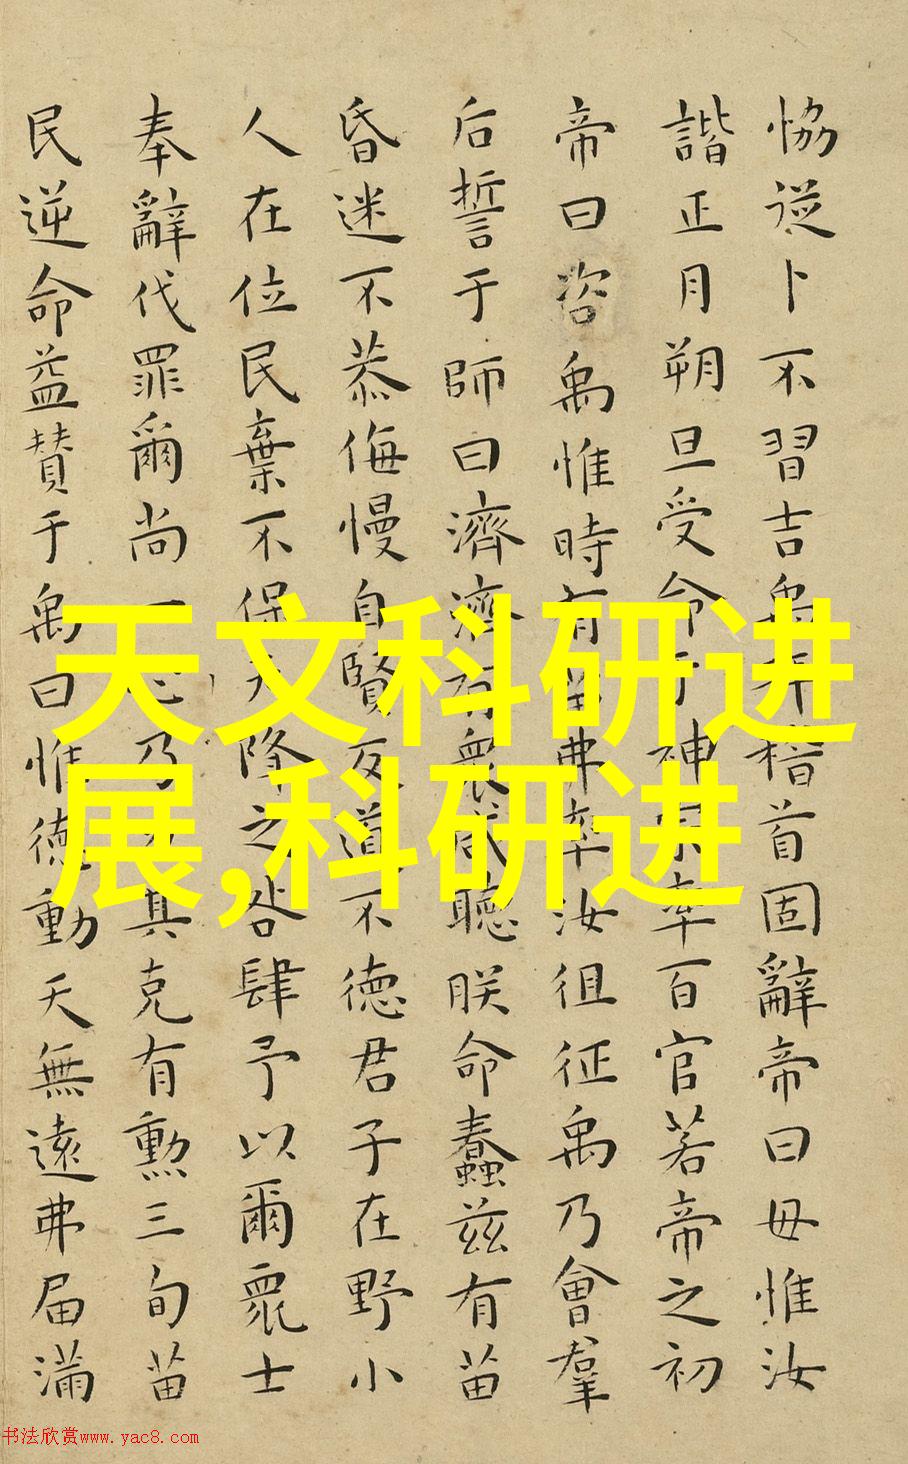 恊從卜不習吉禹拜稽首固辭帝曰毋惟汝
諧正月朔旦受命于神宗率百官若帝之初
帝曰咨禹惟時有苗弗率汝徂征禹乃會羣
后誓于師曰濟濟有衆咸聽朕命蠢兹有苗
昏迷不恭侮慢自賢反道不德君子在野小
人在位民棄不保天降之咎肆予以爾眾士
奉辭伐罪爾尚一心乃力其克有勲三旬苗
民逆命益贊于禹曰惟德動天無遠弗届滿
天文科研进
展,科研进
书法欣赏www.yac8.com